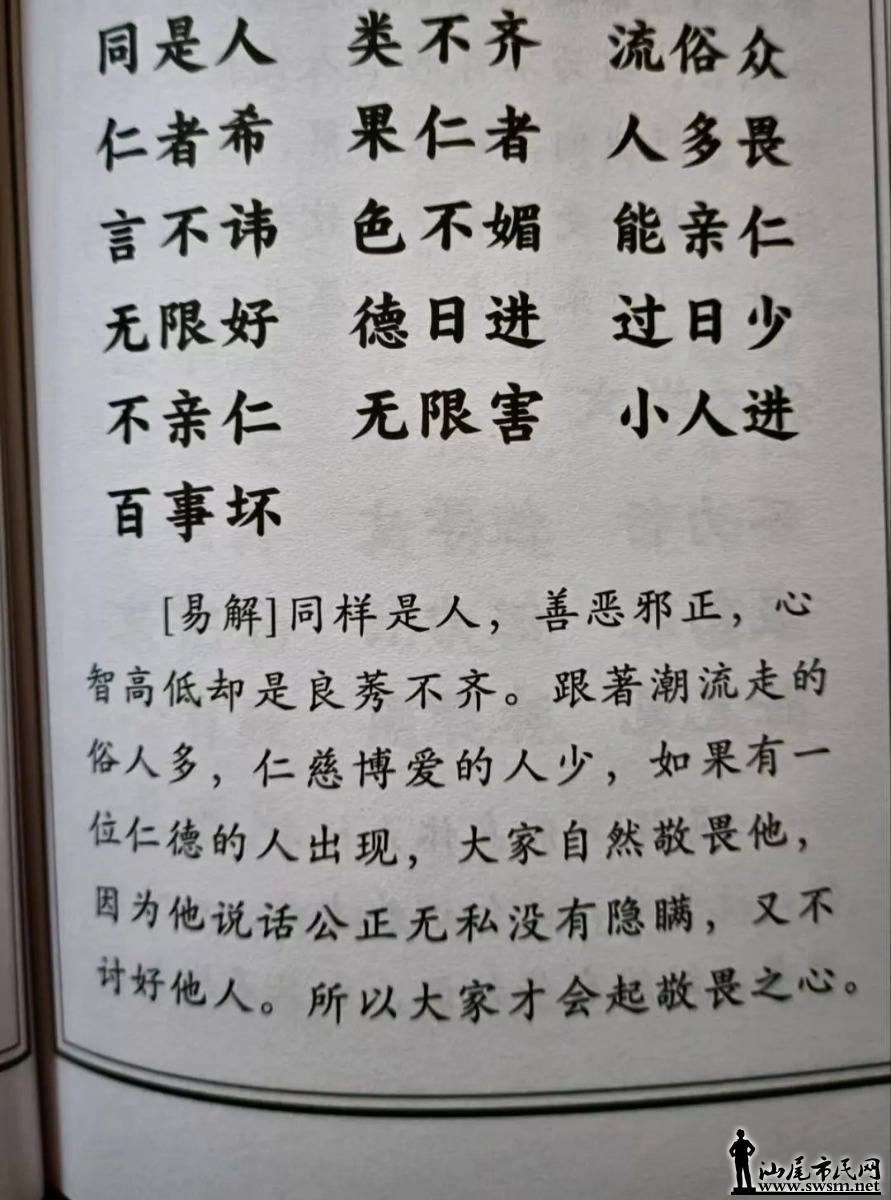 同是人 类不齐 流俗众
仁者希 果仁者 人多畏
言不讳 色不媚 能亲仁
无限好 德日进 过日少
不亲仁 无限害 小人进
百事坏
[易解]同样是人，善恶邪正，心
智高低却是良莠不齐。跟著潮流走的
俗人多，仁慈博爱的人少，如果有一
位仁德的人出现，大家自然敬畏他，
因为他说话公正无私没有隐瞒，又不
讨好他人。所以大家才会起敬畏之心。
汕尾市民网
www.swsm.net